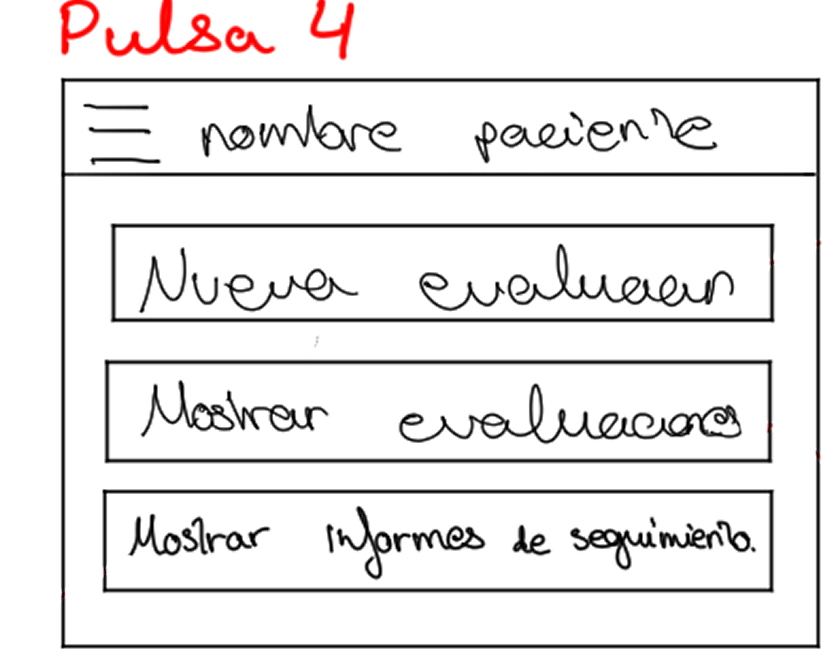 Pulsa 4
nombre paciente
Nueva evaluacion
Mostrar evaluaciones
Mostrar informes de seguimiento.